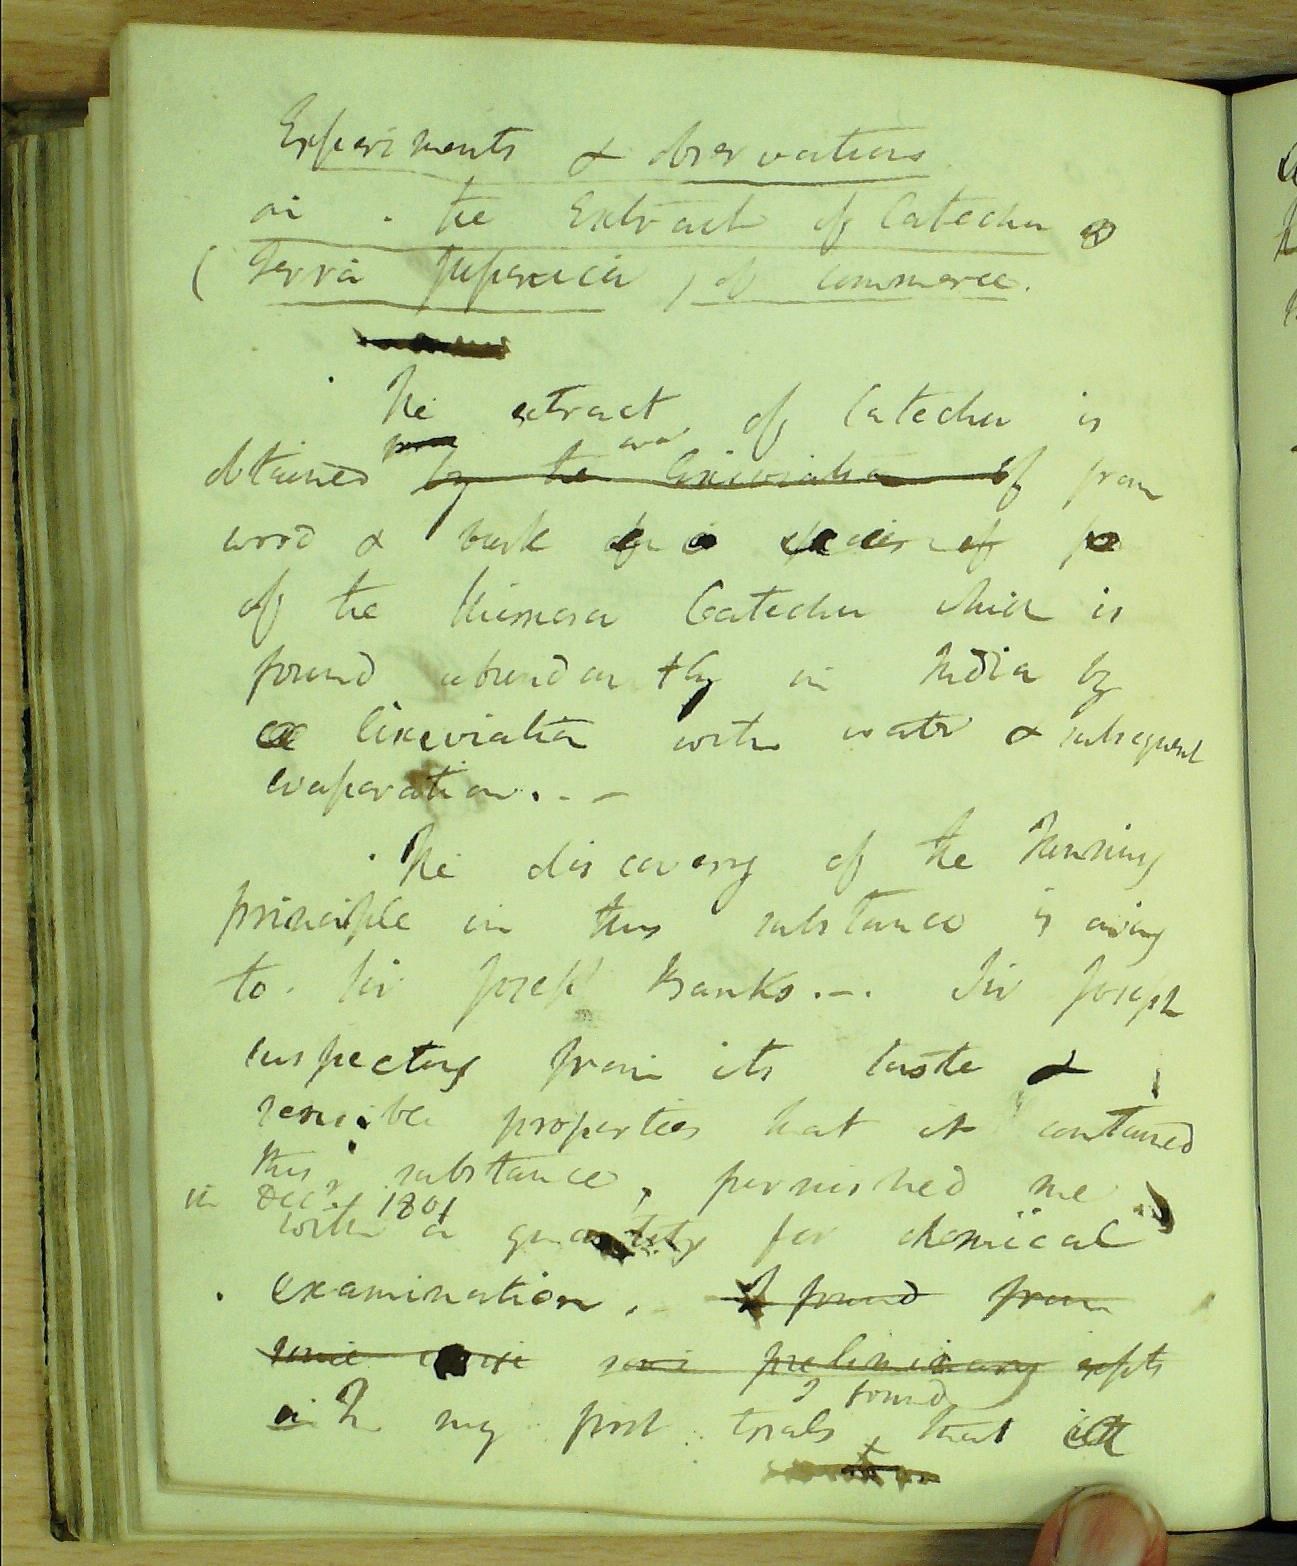 Experiments & observations
on the Extract of Catechu
(Terra Japonica) of commerce.
The extract of Catechu is
from
obtained by the lixiviation of from
wood & bark of a species of
of the Mimosa Catechu which is
found abundantly in India by
lixiviation with water & subsequent
evaporation. . –
The discovery of the Tanning
principle in this substance is owing
to Sir Joseph Banks. –. Sir Joseph
suspecting from its taste &
sensible properties that it contained
this substance, furnished me
in Decr 1801
with a quantity for chemical
examination. I found from
some some preliminary expts
I found
in my first trials that it